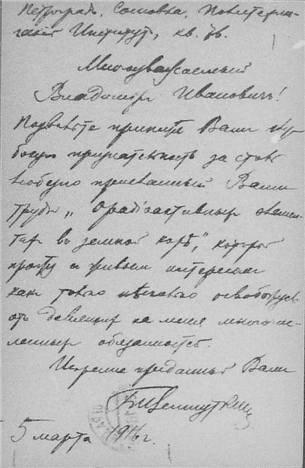 Петроградъ, Сосновка, Политехни-
ческій Институтъ, кв. 76.
Многоуважаемый
Владиміръ Ивановичъ!
Позвольте принести Вамъ глу-
бокую признательность за столь
любезно присланный Вами
трудъ „О радіоактивныхъ
въ земной корѣ", который
прочту съ живымъ интересомъ
какъ только нѣсколько освобожусь
отъ давящихъ на меня многочис-
ленныхъ обязанностей.
Искренно преданный Вамъ
5 марта 1916 г.